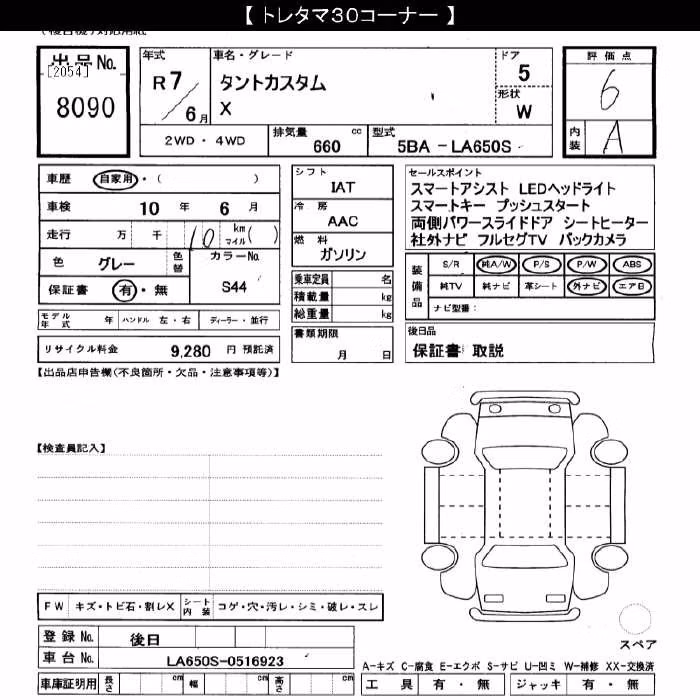 【 トレタマ30コーナー 】
出品No.
[2054]
8090
年式
R7/6月
車名・グレード
タントカスタム
X
ドア
5
形状
W
評価点
6
内装
A
2WD ・ 4WD
排気量 660 cc
型式 5BA - LA650S
車歴 自家用・( )
車検 10 年 6 月
走行 万 千 10 km(マイル)
色 グレー 色替
カラーNo.
S44
保証書 有・無
シフト
IAT
冷房
AAC
燃料
ガソリン
乗車定員 名
積載量 kg
総重量 kg
セールスポイント
スマートアシスト LEDヘッドライト
スマートキー プッシュスタート
両側パワースライドドア シートヒーター
社外ナビ フルセグTV バックカメラ
装備品
S/R 純A/W P/S P/W ABS
純TV 純ナビ 革シート 外ナビ エアB
ナビ型番:
モデル年式 年 ハンドル 左・右 ディーラー・並行
リサイクル料金 9,280 円 預託済
書類期限
月 日
後日品
保証書 取説
【出品店申告欄(不良箇所・欠品・注意事項等)】
【検査員記入】
FW キズ・トビ石・割レX シート内装 コゲ・穴・汚レ・シミ・破レ・スレ
登録No. 後日
車台No. LA650S-0516923
車庫証明用 長さ cm 幅 cm 高さ cm
スペア
A-キズ C-腐食 E-エクボ S-サビ U-凹ミ W-補修 XX-交換済
工具 有・無 ジャッキ 有・無